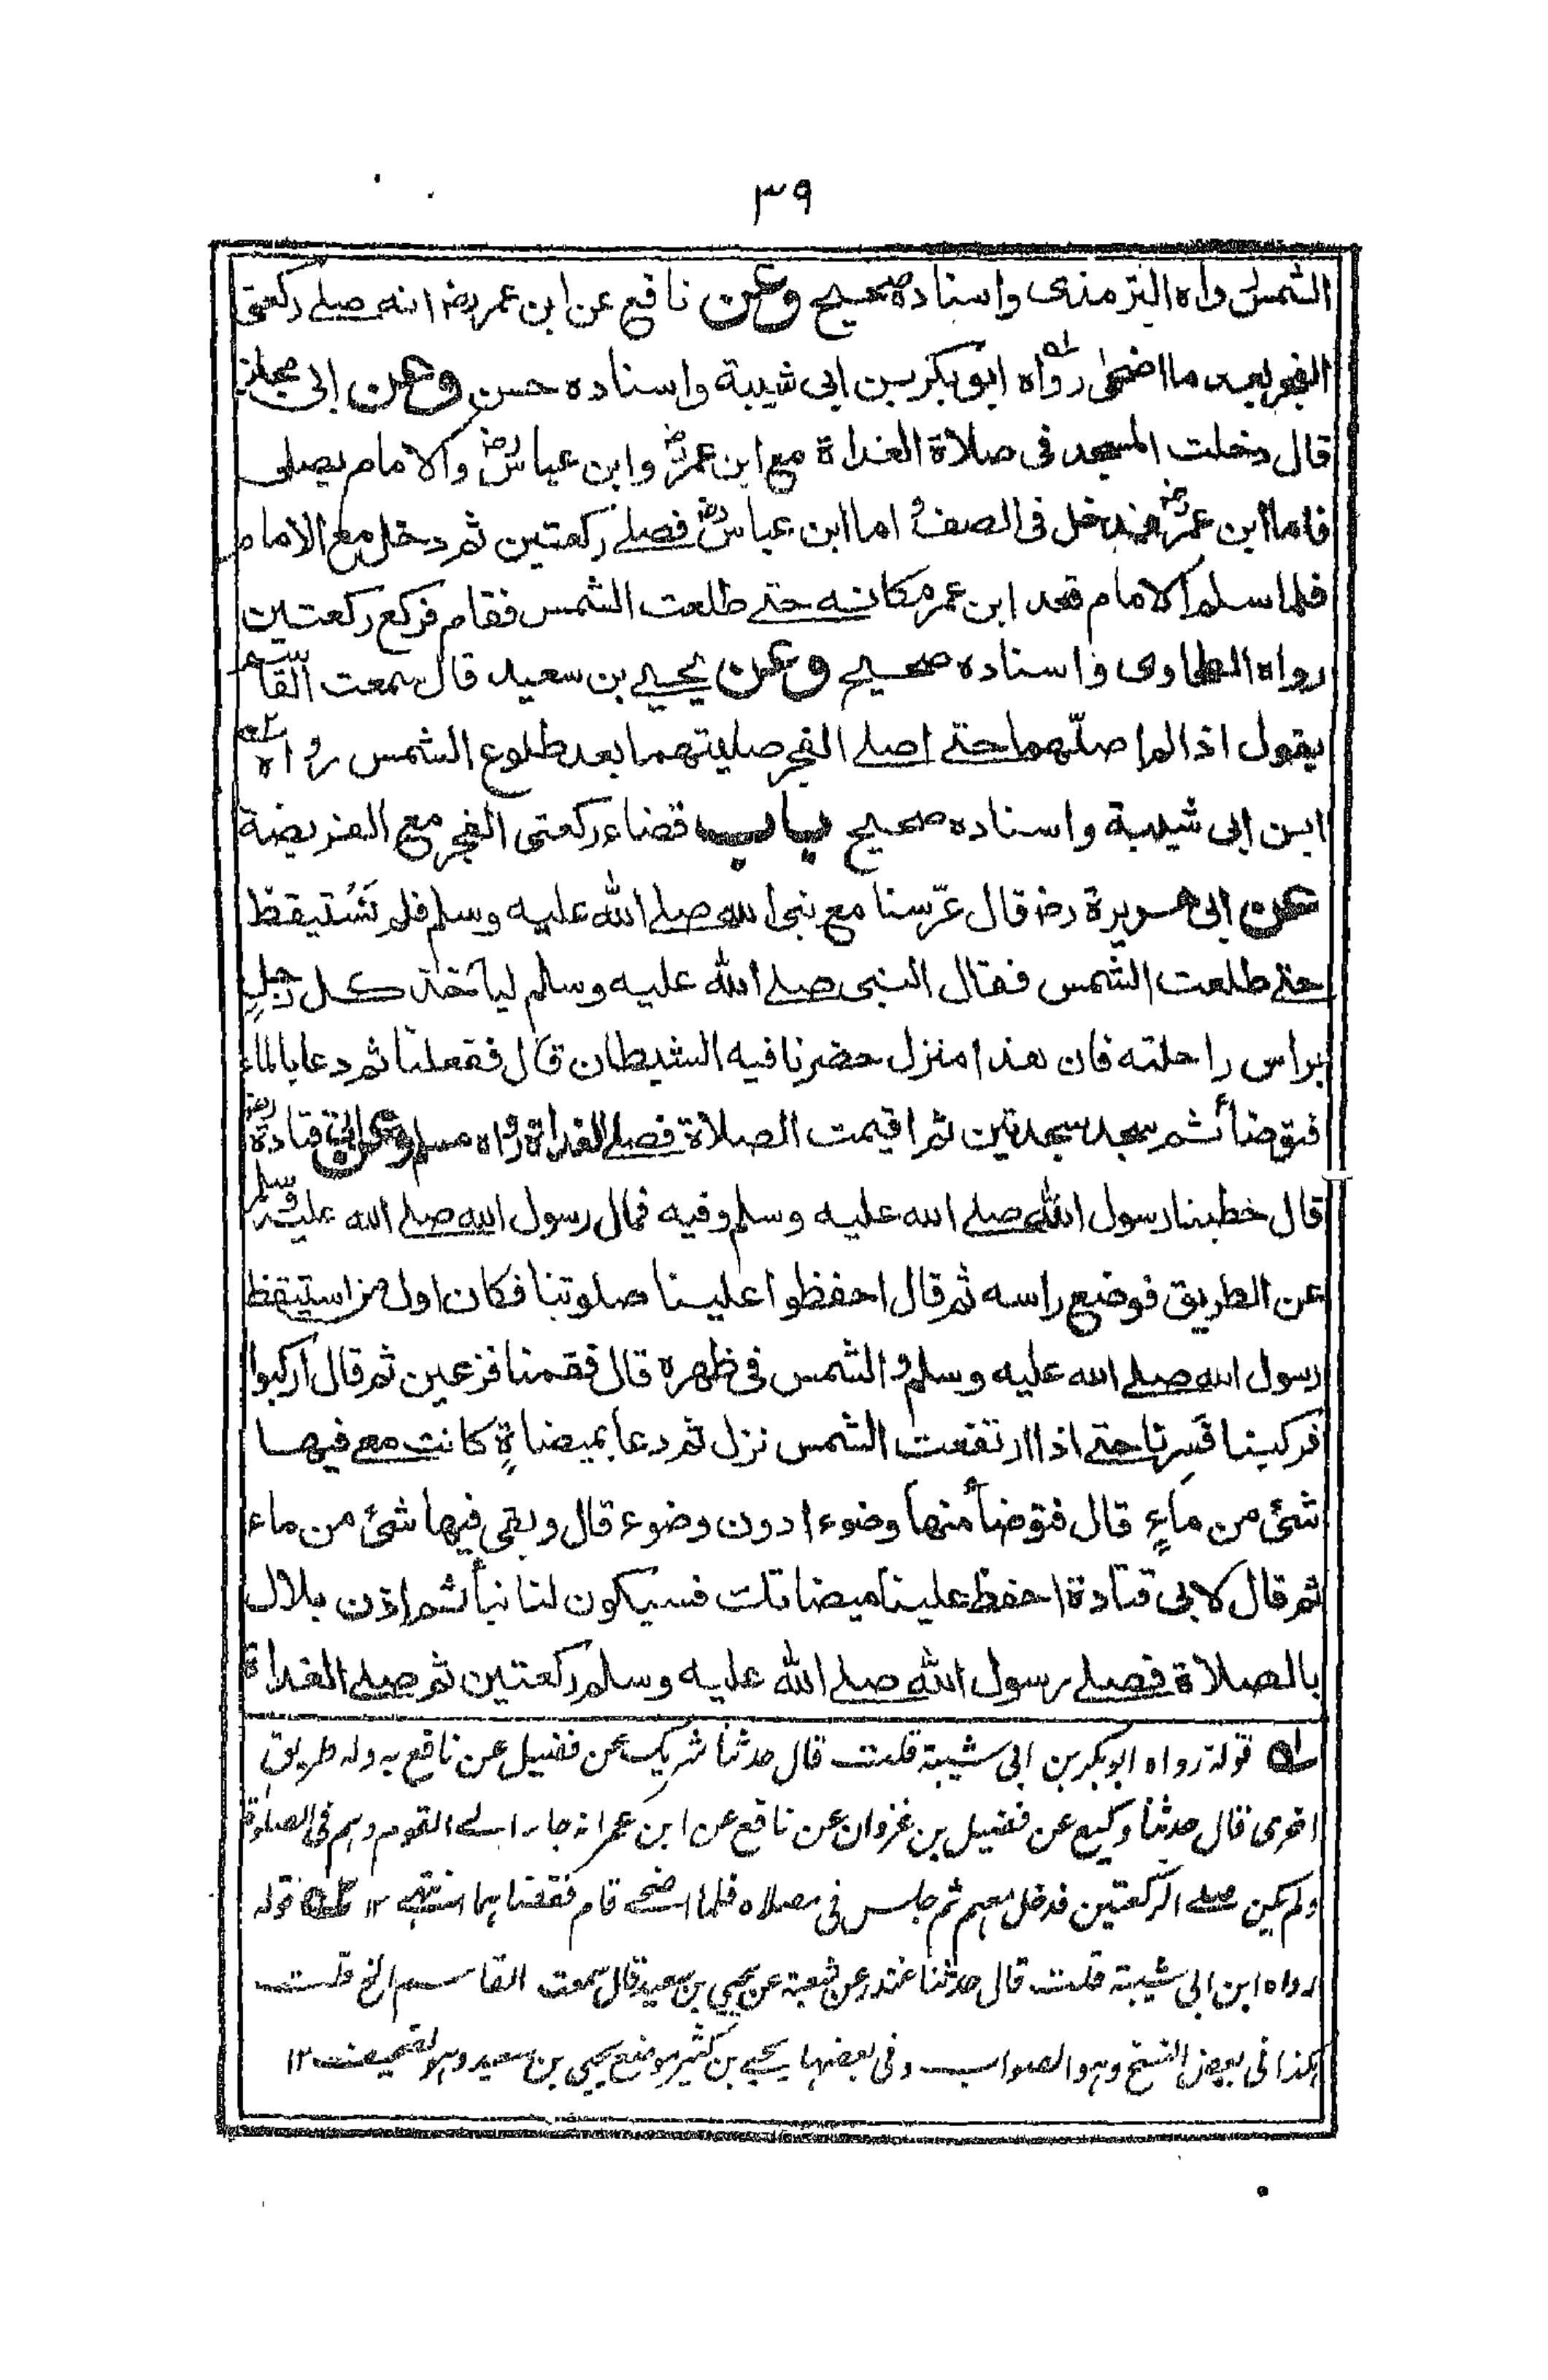 ٣٩
الشمس رواه الترمذى واسناده صحيح وعن نافع عن ابن عمر رض انه صلے ركعتى
الفجر بعد ما اضحى رواه ابو بكر بن ابى شيبة واسناده حسن وعن ابى مجلز
قال دخلت المسجد فى صلاة الغداة مع ابن عمر رض وابن عباس رض والامام يصلى
فاما ابن عمر رض فدخل فى الصف و اما ابن عباس رض فصلے ركعتين ثم دخل مع الامام
فلما سلم الامام قعد ابن عمر مكانه حتے طلعت الشمس فقام فركع ركعتين
رواه الطحاوى واسناده صحيح وعن يحيے بن سعيد قال سمعت القاسم
يقول اذا لم اصلّهما حتے اصلے الفجر صليتهما بعد طلوع الشمس رواه
ابن ابى شيبة واسناده صحيح باب قضاء ركعتى الفجر مع الفريضة
عن ابى هريرة رض قال عرّسنا مع نبى الله صلے الله عليه وسلم فلم نستيقظ
حتے طلعت الشمس فقال النبى صلے الله عليه وسلم ليأخذ كل رجل
براس راحلته فان هذا منزل حضرنا فيه الشيطان قال ففعلنا ثم دعا بالماء
فتوضأ ثم سجد سجدتين ثم اقيمت الصلاة فصلے الغداة رواه مسلم وعن ابى قتادة رض
قال خطبنا رسول الله صلے الله عليه وسلم وفيه فمال رسول الله صلے الله عليه وسلم
عن الطريق فوضع راسه ثم قال احفظوا علينا صلوتنا فكان اول من استيقظ
رسول الله صلے الله عليه وسلم و الشمس فى ظهره قال فقمنا فزعين ثم قال اركبوا
فركبنا فسِرنا حتے اذا ارتفعت الشمس نزل ثم دعا بميضاةٍ كانت معے فيها
شئ من ماءٍ قال فتوضأ منها وضوءا دون وضوء قال وبقى فيها شئ من ماء
ثم قال لابى قتادة احفظ علينا ميضاتك فسيكون لنا نبأ ثم اذن بلال
بالصلاة فصلے رسول الله صلے الله عليه وسلم ركعتين ثم صلے الغداة
له قوله رواه ابو بكر بن ابى شيبة قلت قال حدثنا شريك عن فضيل عن نافع به وله طريق
اخرى قال حدثنا وكيع عن فضيل بن غزوان عن نافع عن ابن عمر انه جاء الے القوم وهم فى الصلوة
ولم يكن صلے الركعتين فدخل معهم ثم جلس فى مصلاه فلما اضحے قام فقضاهما انتهے ١٢ قوله
رواه ابن ابى شيبة قلت قال حدثنا غندر عن شعبة عن يحيى بن سعيد قال سمعت القاسم الخ قلت
هكذا فى بعض النسخ وهو الصواب وفى بعضها يحيے بن كثير موضع يحيى بن سعيد وهو تصحيف ١٢